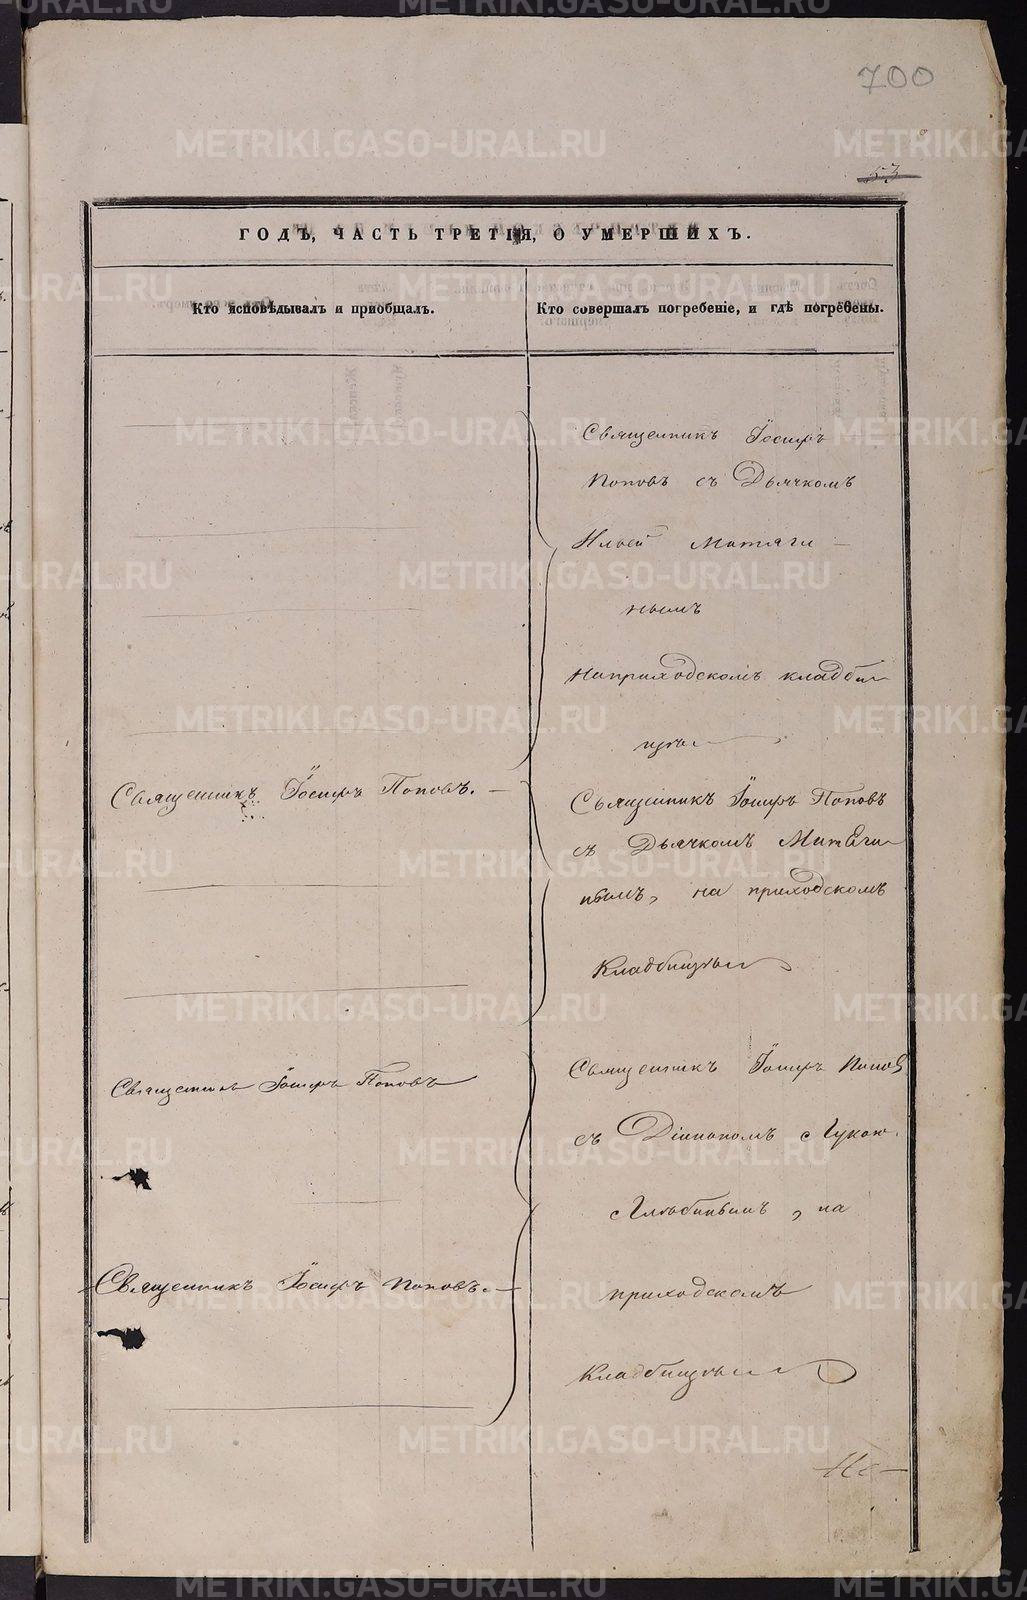 700
53
ГОДЪ, ЧАСТЬ ТРЕТІЯ, О УМЕРШИХЪ.
Кто исповѣдывалъ и приобщалъ.
Кто совершалъ погребеніе, и гдѣ погребены.
Священникъ Іосифъ
Поповъ съ Дьячкомъ
Ильей Матяги-
нымъ
на приходскомъ кладби-
щѣ
Священникъ Іосифъ Поповъ.
Священникъ Іосифъ Поповъ
съ Дьячкомъ Матяги-
нымъ, на приходскомъ
Кладбищѣ
Священникъ Іосифъ Поповъ
Священникъ Іосифъ Поповъ
съ Діакономъ Лукою
Глѣбовымъ, на
Священникъ Іосифъ Поповъ.
приходскомъ
Кладбищѣ
METRIKI.GASO-URAL.RU